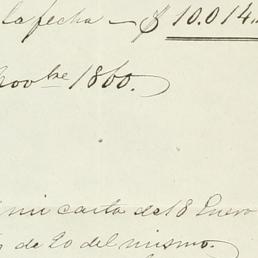 la fecha — $ 10.014.
Novbre 1860.
mi carta de 18 Enero
de 20 del mismo.